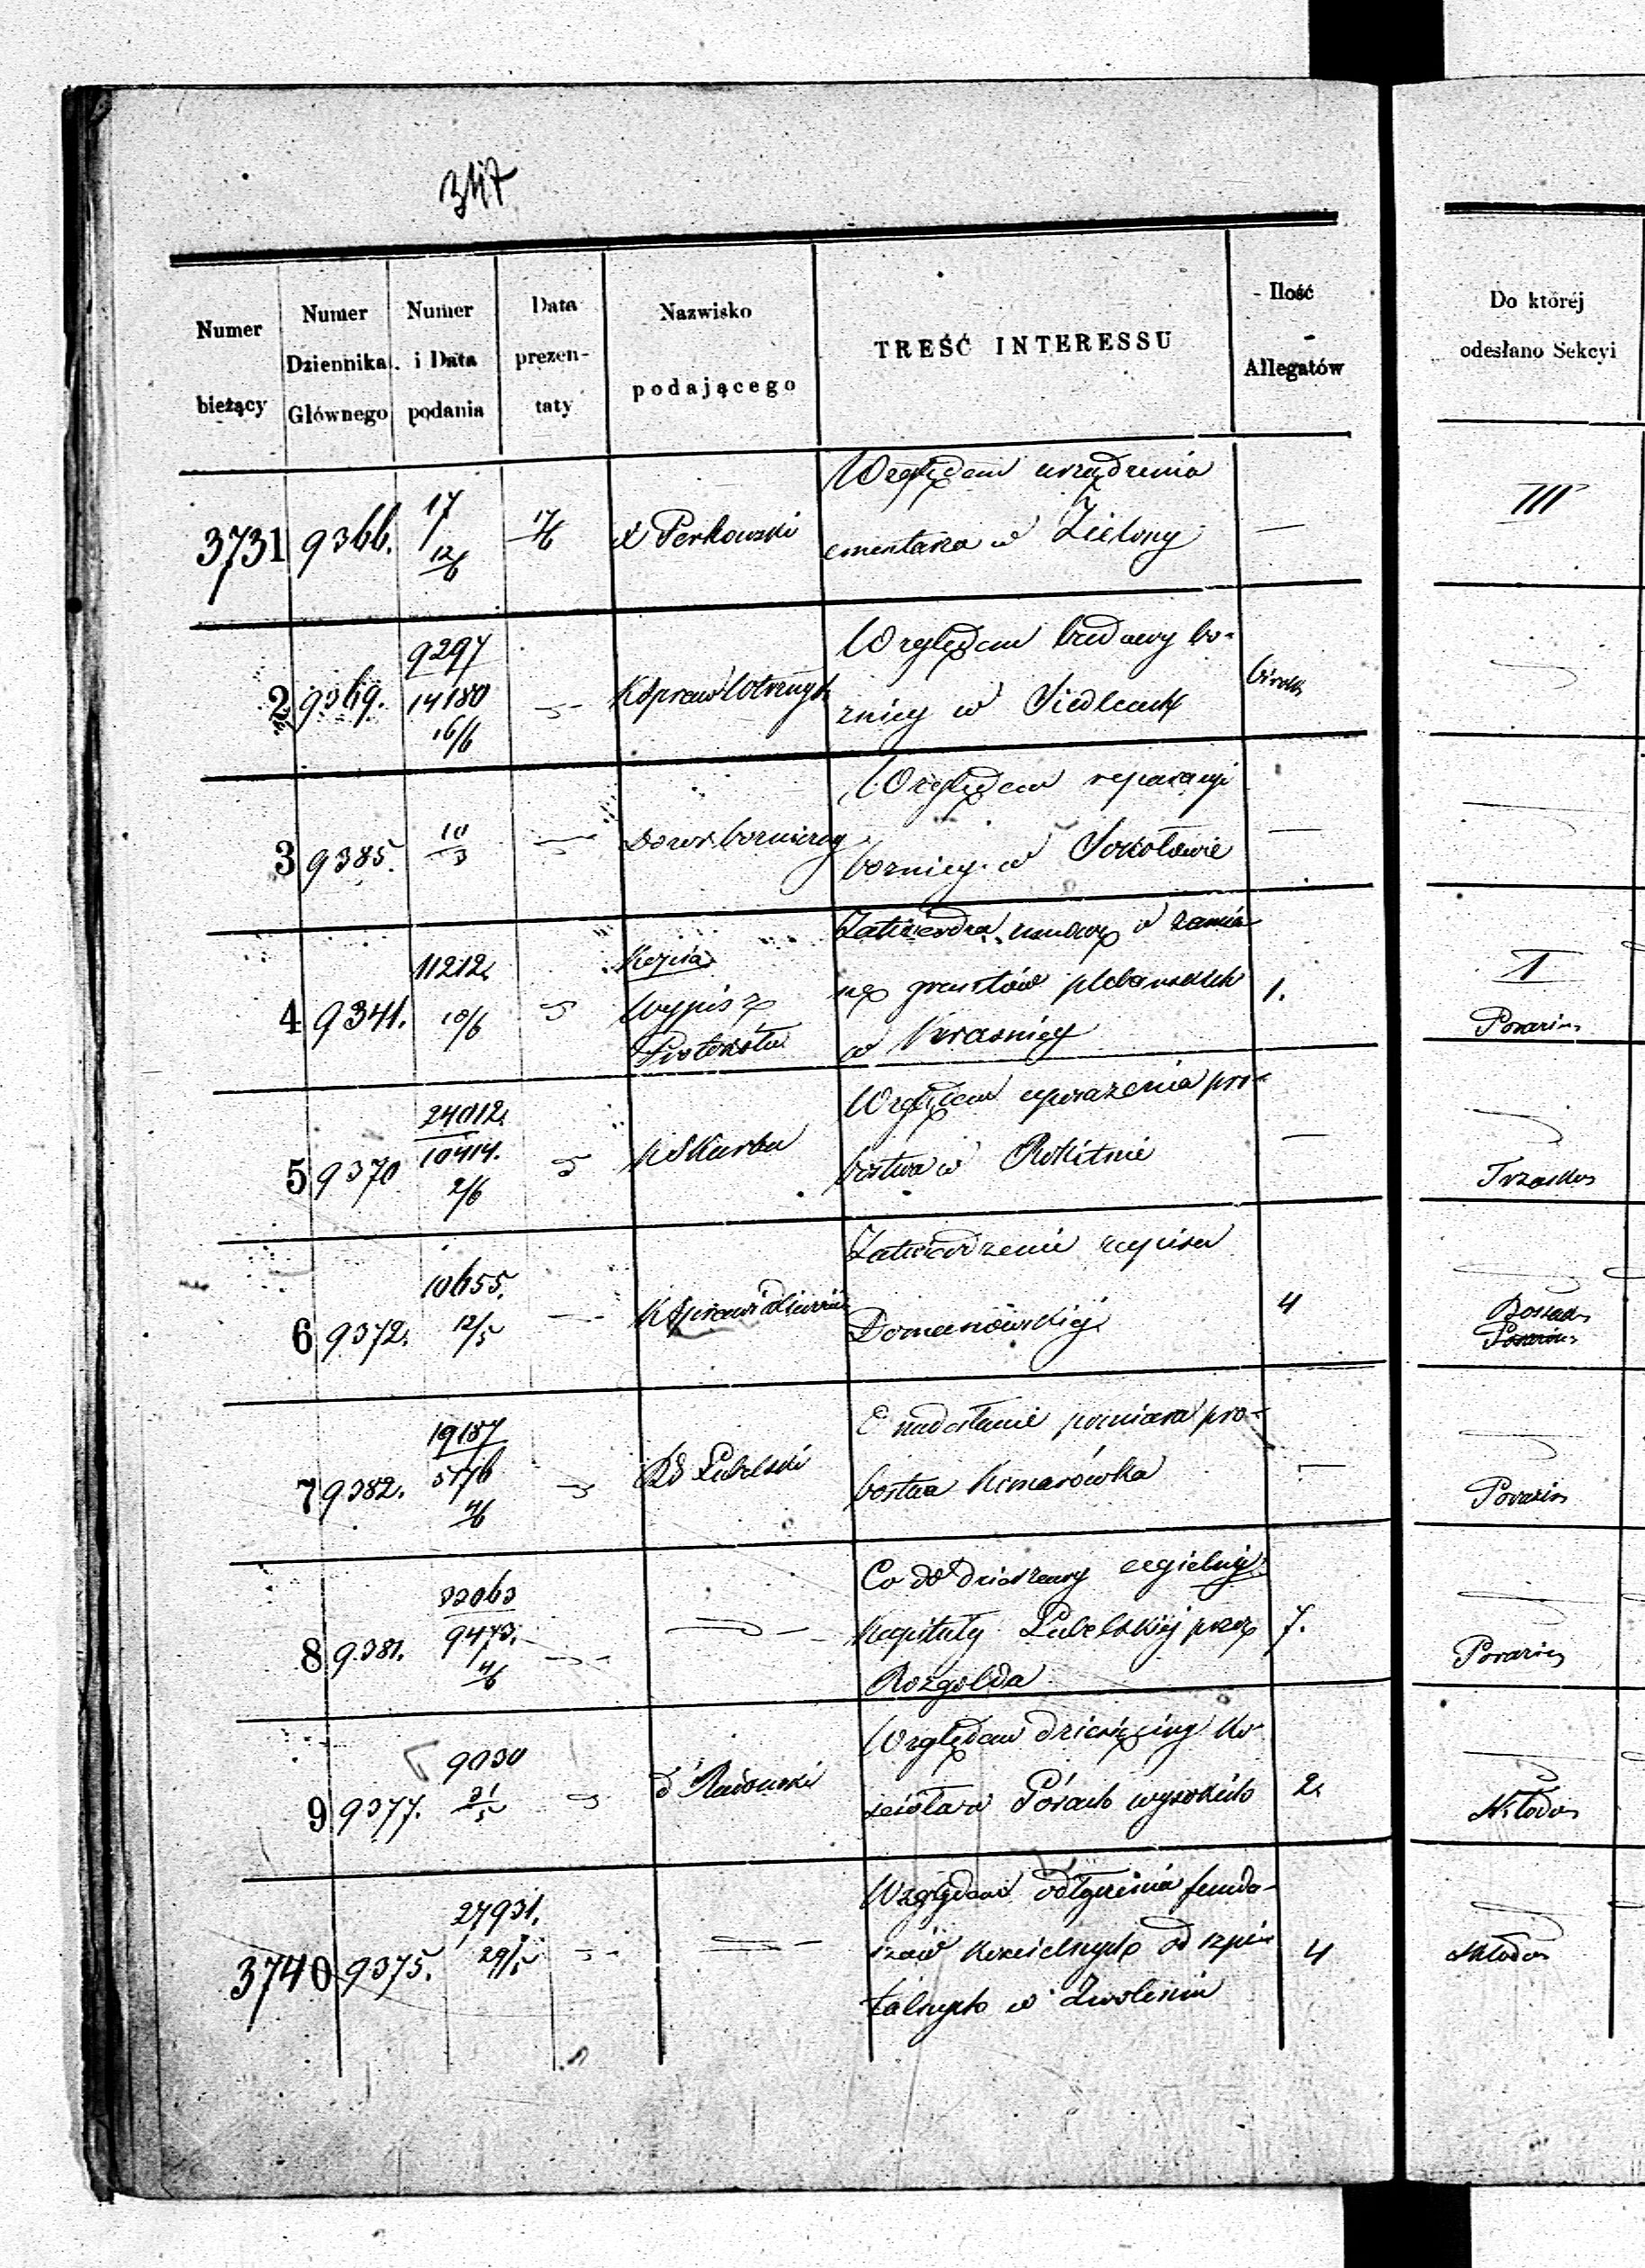 347
Numer bieżący
Numer Dziennika Głównego
Numer i Data podania
Data prezen- taty
Nazwisko podającego
TREŚĆ INTERESSU
Ilość - Allegatów
Do której odesłano Sekcyi
3731 9366. 17 12/6 17/6 X Perkowski
Względem urządzenia
cmentarza w Zielony —
III
2 9369. 9297 14180 16/6
Względem budowy bo-
znicy w Siedlcach
3 9385. 10/3 Dozór bozniczy
Względem reparacyi
boznicy w Sokołowie —
4 9341. 11212. 10/6
Kopia
Wypis z
Protokółu
Zatwierdza umowę o zamia
nę gruntów plebańskich
w Kraśnicy
1.
I
5 9370 24012. 10414. 2/6 K Skarbu
Względem uposażenia pro-
bostwa w Rokitnie —
6 9372. 10655. 12/5 K Sprawiedliwości
Zatwierdzenie zapisu
Domanowskiej
4
7 9382. 19187 5176 4/6 RG Lubelski
O nadesłanie pomiaru pro-
bostwa Komarówka —
8 9381. 32063 9473. 4/6
Co do dzierżawy cegielni
Kapituły Lubelskiej przez
Rozgolda
7.
9 9377. 9030 31/5 d° Radomski
Względem dziesięciny Ko-
ścioła w Górach wysokich
2.
3740 9375. 27931. 29/5
Względem odłączenia fundu-
szów Kościelnych od szpi-
talnych w Zwoleniu
4